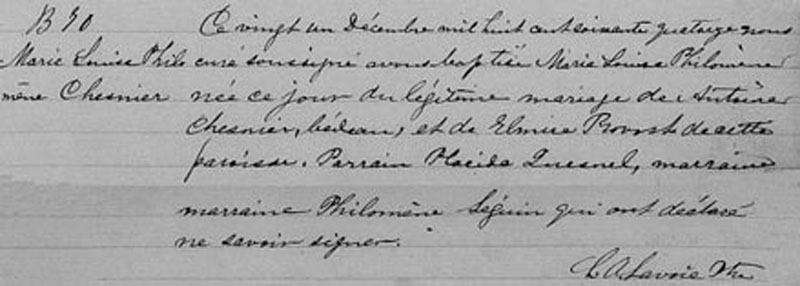 B 50
Marie Louise Philo
mène Chesnier
Ce vingt un Décembre mil huit cent soixante quatorze nous
curé soussigné avons baptisé Marie Louise Philomène
née ce jour du légitime mariage de Antoine
Chesnier, bédeau, et de Elmire Provost de cette
paroisse. Parrain Placide Quesnel, marraine
marraine Philomène Séguin qui ont déclaré
ne savoir signer.
L. A. Lavoie Ptre